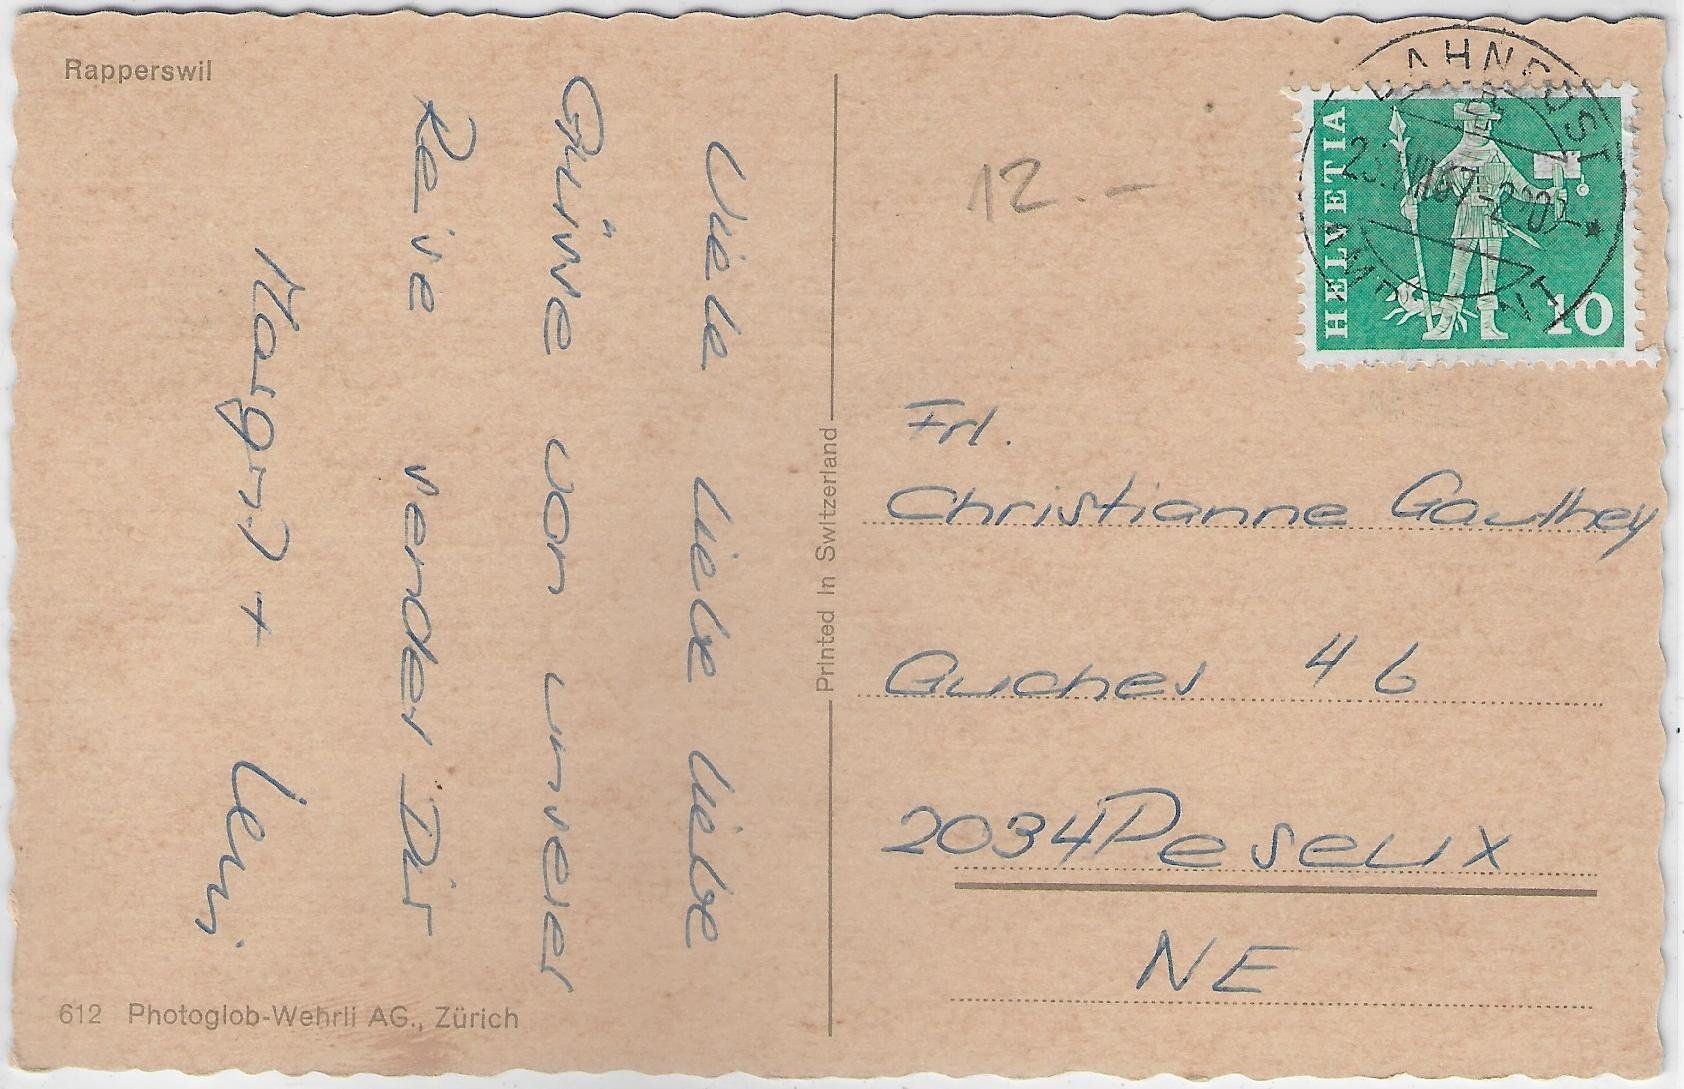 Rapperswil
Viele liebe liebe
Grüsse von unserer
Reise sendet Dir
Margrit + Leni
612 Photoglob-Wehrli AG., Zürich
Printed in Switzerland
12.-
HELVETIA
10
BAHNPOST
Frl.
Christianne Gauthey
Guches 4 b
2034 Peseux
NE